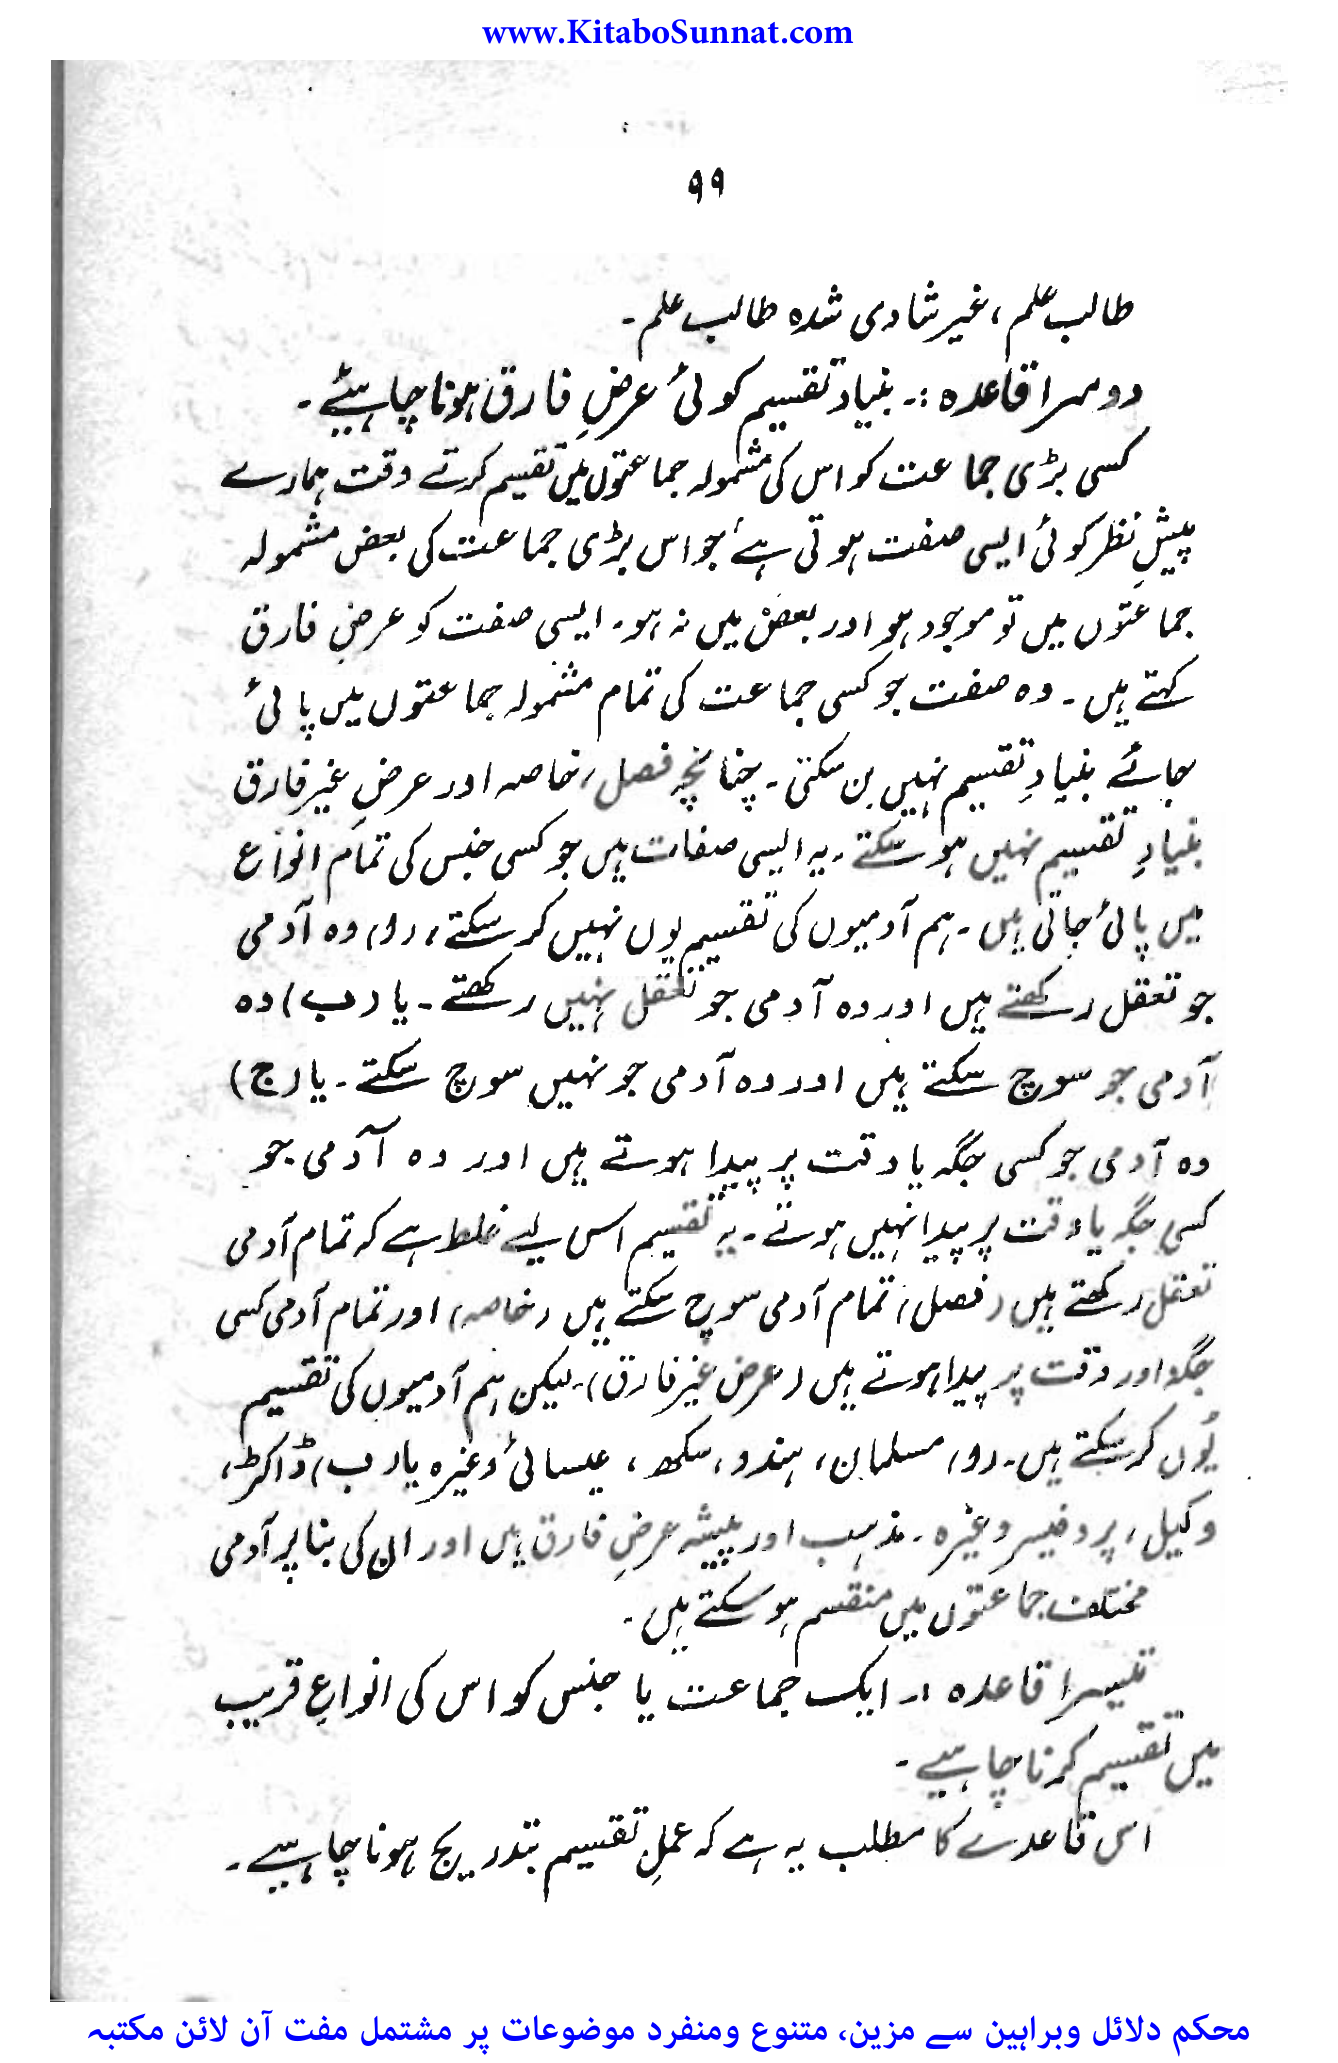 www.KitaboSunnat.com
۹۹
طالب علم، غیر شادی شدہ طالب علم۔
دوسرا قاعدہ :۔ بنیاد تقسیم کوئی عرضِ فارق ہونا چاہیئے۔
کسی بڑی جماعت کو اس کی مشمولہ جماعتوں میں تقسیم کرتے وقت ہمارے
پیشِ نظر کوئی ایسی صفت ہوتی ہے جو اس بڑی جماعت کی بعض مشمولہ
جماعتوں میں تو موجود ہو اور بعض میں نہ ہو۔ ایسی صفت کو عرضِ فارق
کہتے ہیں۔ وہ صفت جو کسی جماعت کی تمام مشمولہ جماعتوں میں پائی
جائے بنیادِ تقسیم نہیں بن سکتی۔ چنانچہ فصل، خاصہ اور عرضِ غیر فارق
بنیادِ تقسیم نہیں ہو سکتے۔ یہ ایسی صفات ہیں جو کسی جنس کی تمام انواع
میں پائی جاتی ہیں۔ ہم آدمیوں کی تقسیم یوں نہیں کر سکتے، (ا) وہ آدمی
جو تعقل رکھتے ہیں اور وہ آدمی جو تعقل نہیں رکھتے۔ یا (ب) وہ
آدمی جو سوچ سکتے ہیں اور وہ آدمی جو نہیں سوچ سکتے۔ یا (ج)
وہ آدمی جو کسی جگہ یا وقت پر پیدا ہوتے ہیں اور وہ آدمی جو
کسی جگہ یا وقت پر پیدا نہیں ہوتے۔ یہ تقسیم اس لیے غلط ہے کہ تمام آدمی
تعقل رکھتے ہیں (فصل) تمام آدمی سوچ سکتے ہیں (خاصہ) اور تمام آدمی کسی
جگہ اور وقت پر پیدا ہوتے ہیں (عرض غیر فارق)۔ لیکن ہم آدمیوں کی تقسیم
یُوں کر سکتے ہیں۔ (ا) مسلمان، ہندو، سکھ، عیسائی وغیرہ یا (ب) ڈاکٹر،
وکیل، پروفیسر وغیرہ۔ مذہب اور پیشہ عرضِ فارق ہیں اور ان کی بنا پر آدمی
مختلف جماعتوں میں منقسم ہو سکتے ہیں۔
تیسرا قاعدہ :۔ ایک جماعت یا جنس کو اس کی انواعِ قریب
میں تقسیم کرنا چاہیے۔
اس قاعدے کا مطلب یہ ہے کہ عملِ تقسیم بتدریج ہونا چاہیے۔
محکم دلائل وبراہین سے مزین، متنوع ومنفرد موضوعات پر مشتمل مفت آن لائن مکتبہ